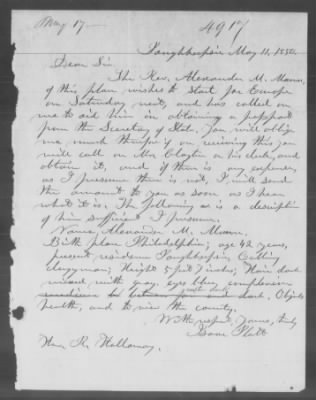 May 17
4917
Poughkeepsie May 11, 1850.
Dear Sir.
The Rev. Alexander M. Mann,
of this place wishes to start for Europe
on Saturday next, and has called on
me to aid him in obtaining a passport
from the Secretary of State. You will oblige
me much therefore on receiving this you
will call on Mr. Clayton or his clerk, and
obtain it, and if there is any expense
as I presume there is not, I will send
the amount to you as soon as I hear
what it is. The following is a description
of him sufficient I presume.
Name Alexander M. Mann.
Birth place Philadelphia; age 42 years,
present residence Poughkeepsie Calling
clergyman; Height 5 feet 7 inches; Hair dark
mixed with gray, eyes blue, complexion
rather dark. Object
health, and to view the country.
With respect, Yours, truly
Isaac Platt
Hon. R. Halloway.